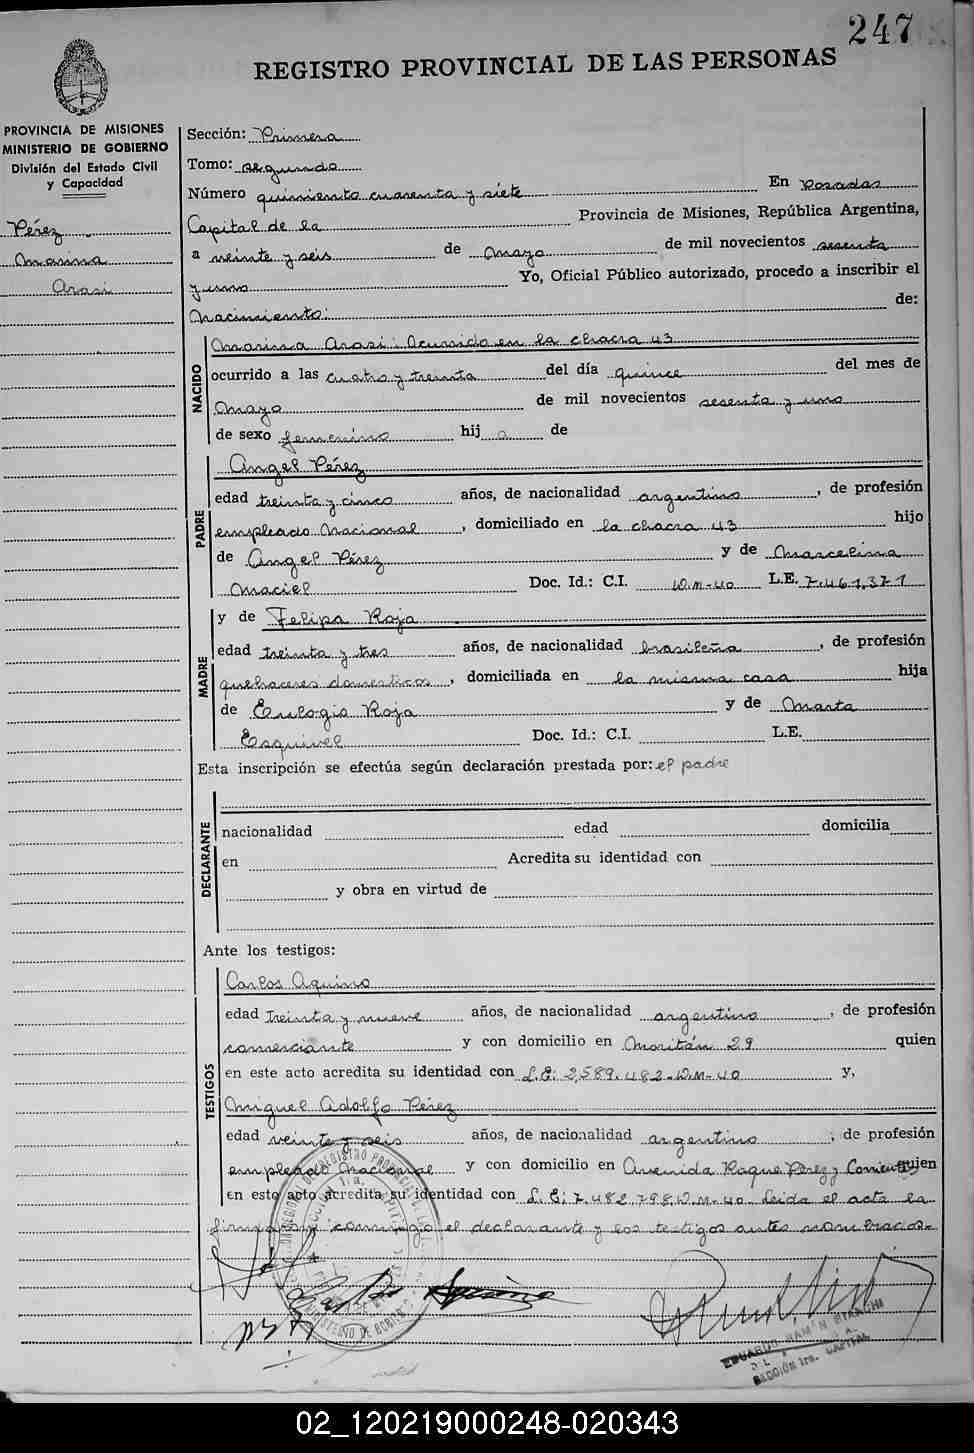 247
REGISTRO PROVINCIAL DE LAS PERSONAS
PROVINCIA DE MISIONES
MINISTERIO DE GOBIERNO
División del Estado Civil
y Capacidad
Pérez
Marina
Arasi
Sección: Primera
Tomo: segundo
Número quinientos cuarenta y siete En Posadas
Capital de la Provincia de Misiones, República Argentina,
a veinte y seis de Mayo de mil novecientos sesenta
y uno Yo, Oficial Público autorizado, procedo a inscribir el
Nacimiento: de:
NACIDO
Marina Arasi: Ocurrido en la chacra 43
ocurrido a las cuatro y treinta del día quince del mes de
Mayo de mil novecientos sesenta y uno
de sexo femenino hij a de
PADRE
Angel Pérez
edad treinta y cinco años, de nacionalidad argentino, de profesión
empleado Nacional, domiciliado en la chacra 43 hijo
de Angel Pérez y de Marcelina
Maciel Doc. Id.: C.I. D.M-40 L.E. 7.461.371
MADRE
y de Felipa Roja
edad treinta y tres años, de nacionalidad brasileña, de profesión
quehaceres domesticos, domiciliada en la misma casa hija
de Eulogio Roja y de Marta
Esquivel Doc. Id.: C.I. L.E.
Esta inscripción se efectúa según declaración prestada por: el padre
DECLARANTE
nacionalidad edad domicilia
en Acredita su identidad con
y obra en virtud de
Ante los testigos:
TESTIGOS
Carlos Aquino
edad treinta y nueve años, de nacionalidad argentino, de profesión
comerciante y con domicilio en Moritán 29 quien
en este acto acredita su identidad con L.E: 2.589.482-D.M-40 y,
Miguel Adolfo Pérez
edad veinte y seis años, de nacionalidad argentino; de profesión
empleado Nacional y con domicilio en Avenida Roque Perez y Corrientes quien
en este acto acredita su identidad con L.E: 7.482.798.D.M-40. Leida el acta la
firman conmigo el declarante y los testigos antes nombrados-
EDUARDO RAMÓN
SECCIÓN 1ra. CAPITAL
02_120219000248-020343